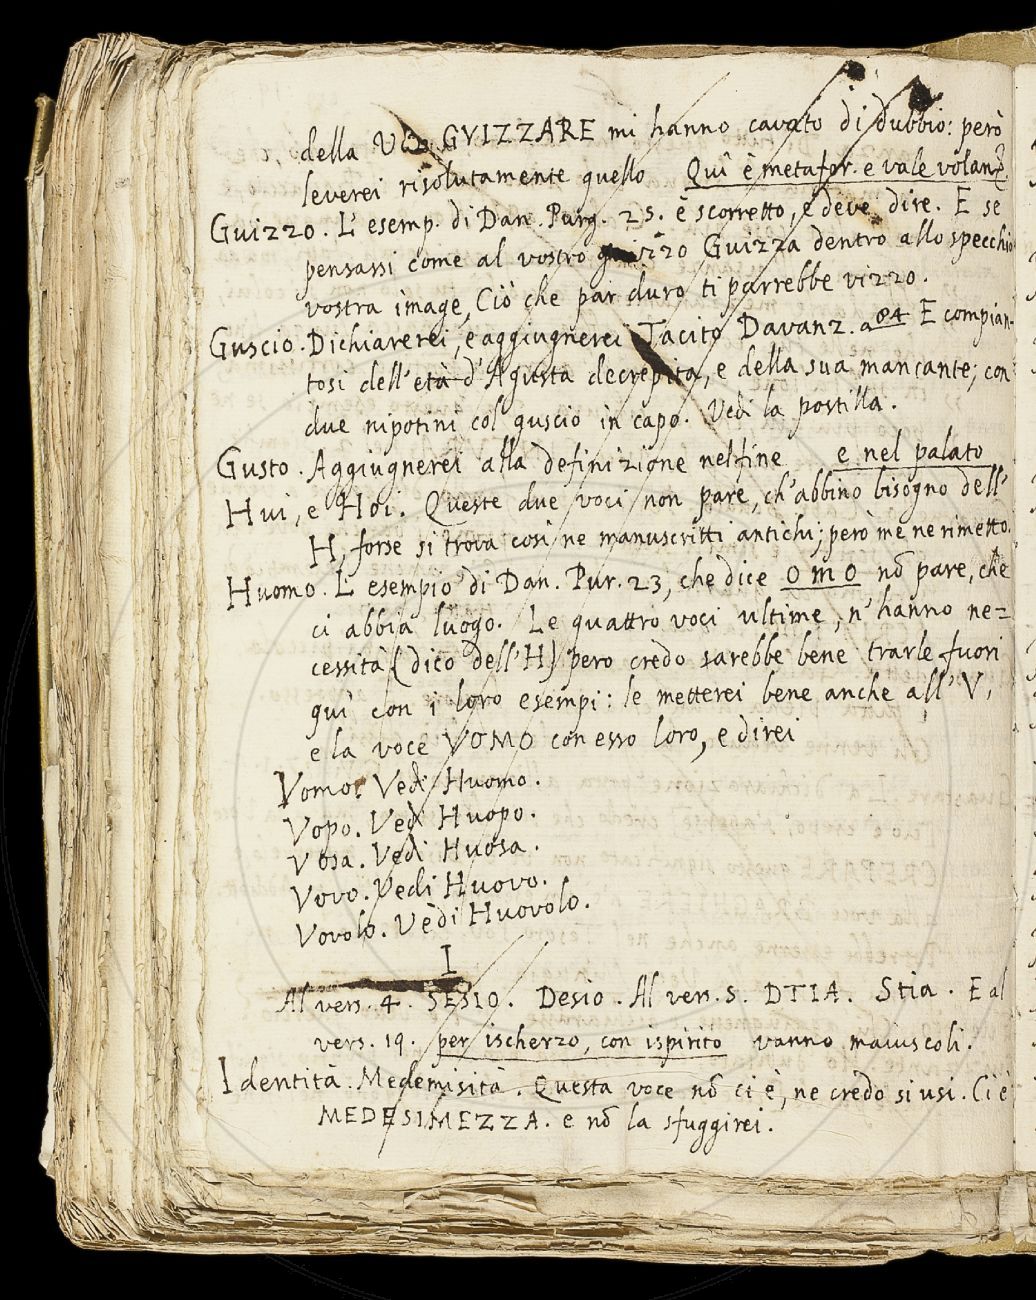 della GVIZZARE mi hanno cavato di dubbio: però
leverei risolutamente quello Quì è metafor. e vale volan
Guizzo. L'esemp. di Dan. Purg. 25. è scorretto, e deve dire. E se
pensassi come al vostro guizzo Guizza dentro allo specchio
vostra image, Ciò che par duro ti parrebbe vizzo.
Guscio. Dichiarerei, e aggiugnerei Tacito Davanz. a 84 E compian-
tosi dell'età d'Agusta decrepita, e della sua mancante; con
due nipotini col guscio in capo. Vedi la postilla.
Gusto. Aggiugnerei alla definizione nel fine e nel palato
Hui, e Hoi. Queste due voci non pare, ch'abbino bisogno dell'
H, forse si trova così ne manuscritti antichi; però me ne rimetto.
Huomo. L'esempio di Dan. Pur. 23, che dice omo nō pare, che
ci abbia luogo. Le quattro voci ultime, n'hanno ne=
cessità (dico dell'H) pero credo sarebbe bene trarle fuori
qui con i loro esempi: le metterei bene anche all'V,
e la voce VOMO con esso loro, e direi
Vomo. Vedi Huomo.
Vopo. Vedi Huopo.
Vosa. Vedi Huosa.
Vovo. Vedi Huovo.
Vovolo. Vedi Huovolo.
I
Al vers. 4. SESIO. Desio. Al vers. 5. DTIA. Stia. E al
vers. 19. per ischerzo, con ispirito vanno maiuscoli.
Identità. Medemisità. Questa voce nō ci è, ne credo si usi. Ci è
MEDESIMEZZA. e nō la sfuggirei.